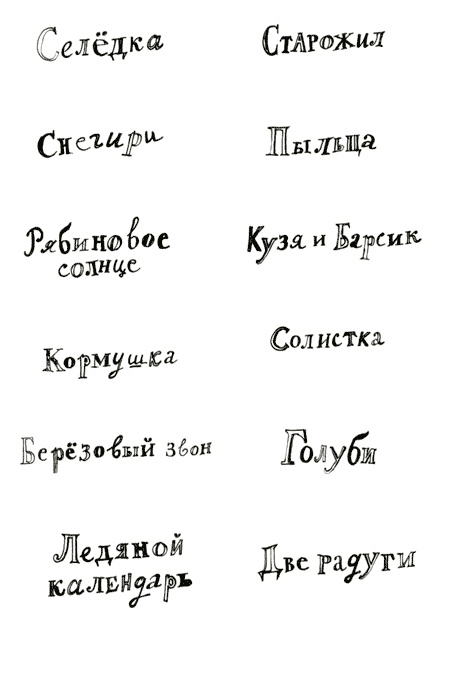 Селёдка
Снегири
Рябиновое
солнце
Кормушка
Берёзовый звон
Ледяной
календарь
Старожил
Пыльца
Кузя и Барсик
Солистка
Голуби
Две радуги